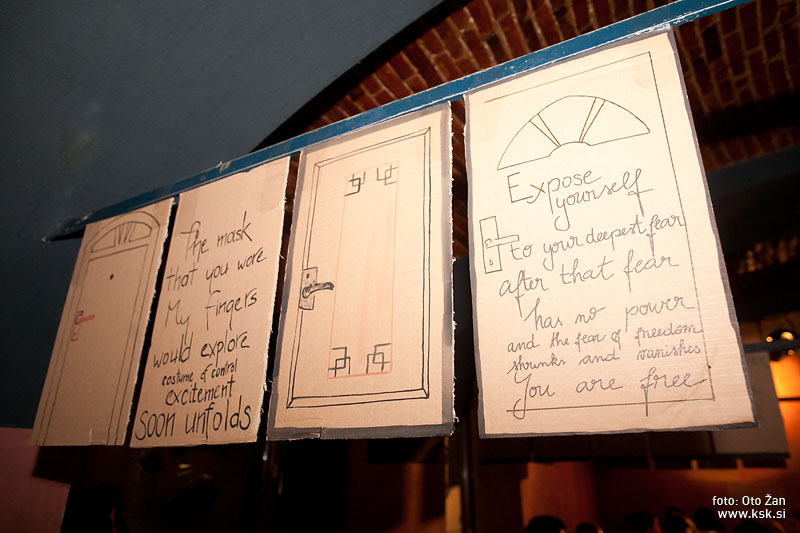 The mask
that you wore
My fingers
would explore
costume of control
excitement
soon unfolds
Expose
yourself
to your deepest fear
after that fear
has no power
and the fear of freedom
shrinks and vanishes
You are free
foto: Oto Žan
www.ksk.si